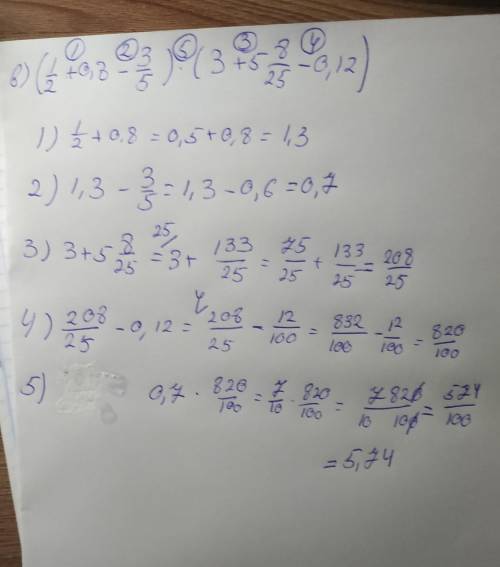 ① ② ⑤ ③ ④
в) (1/2 + 0,8 − 3/5) · (3 + 5 8/25 − 0,12)
1) 1/2 + 0.8 = 0,5 + 0,8 = 1,3
2) 1,3 − 3/5 = 1,3 − 0,6 = 0,7
3) 3 + 5 8/25 = 25/ 3 + 133/25 = 75/25 + 133/25 = 208/25
4) 208/25 − 0,12 = 4/ 208/25 − 12/100 = 832/100 − 12/100 = 820/100
5) 0,7 · 820/100 = 7/10 · 820/100 = 7 820/10 100 = 574/100
= 5,74